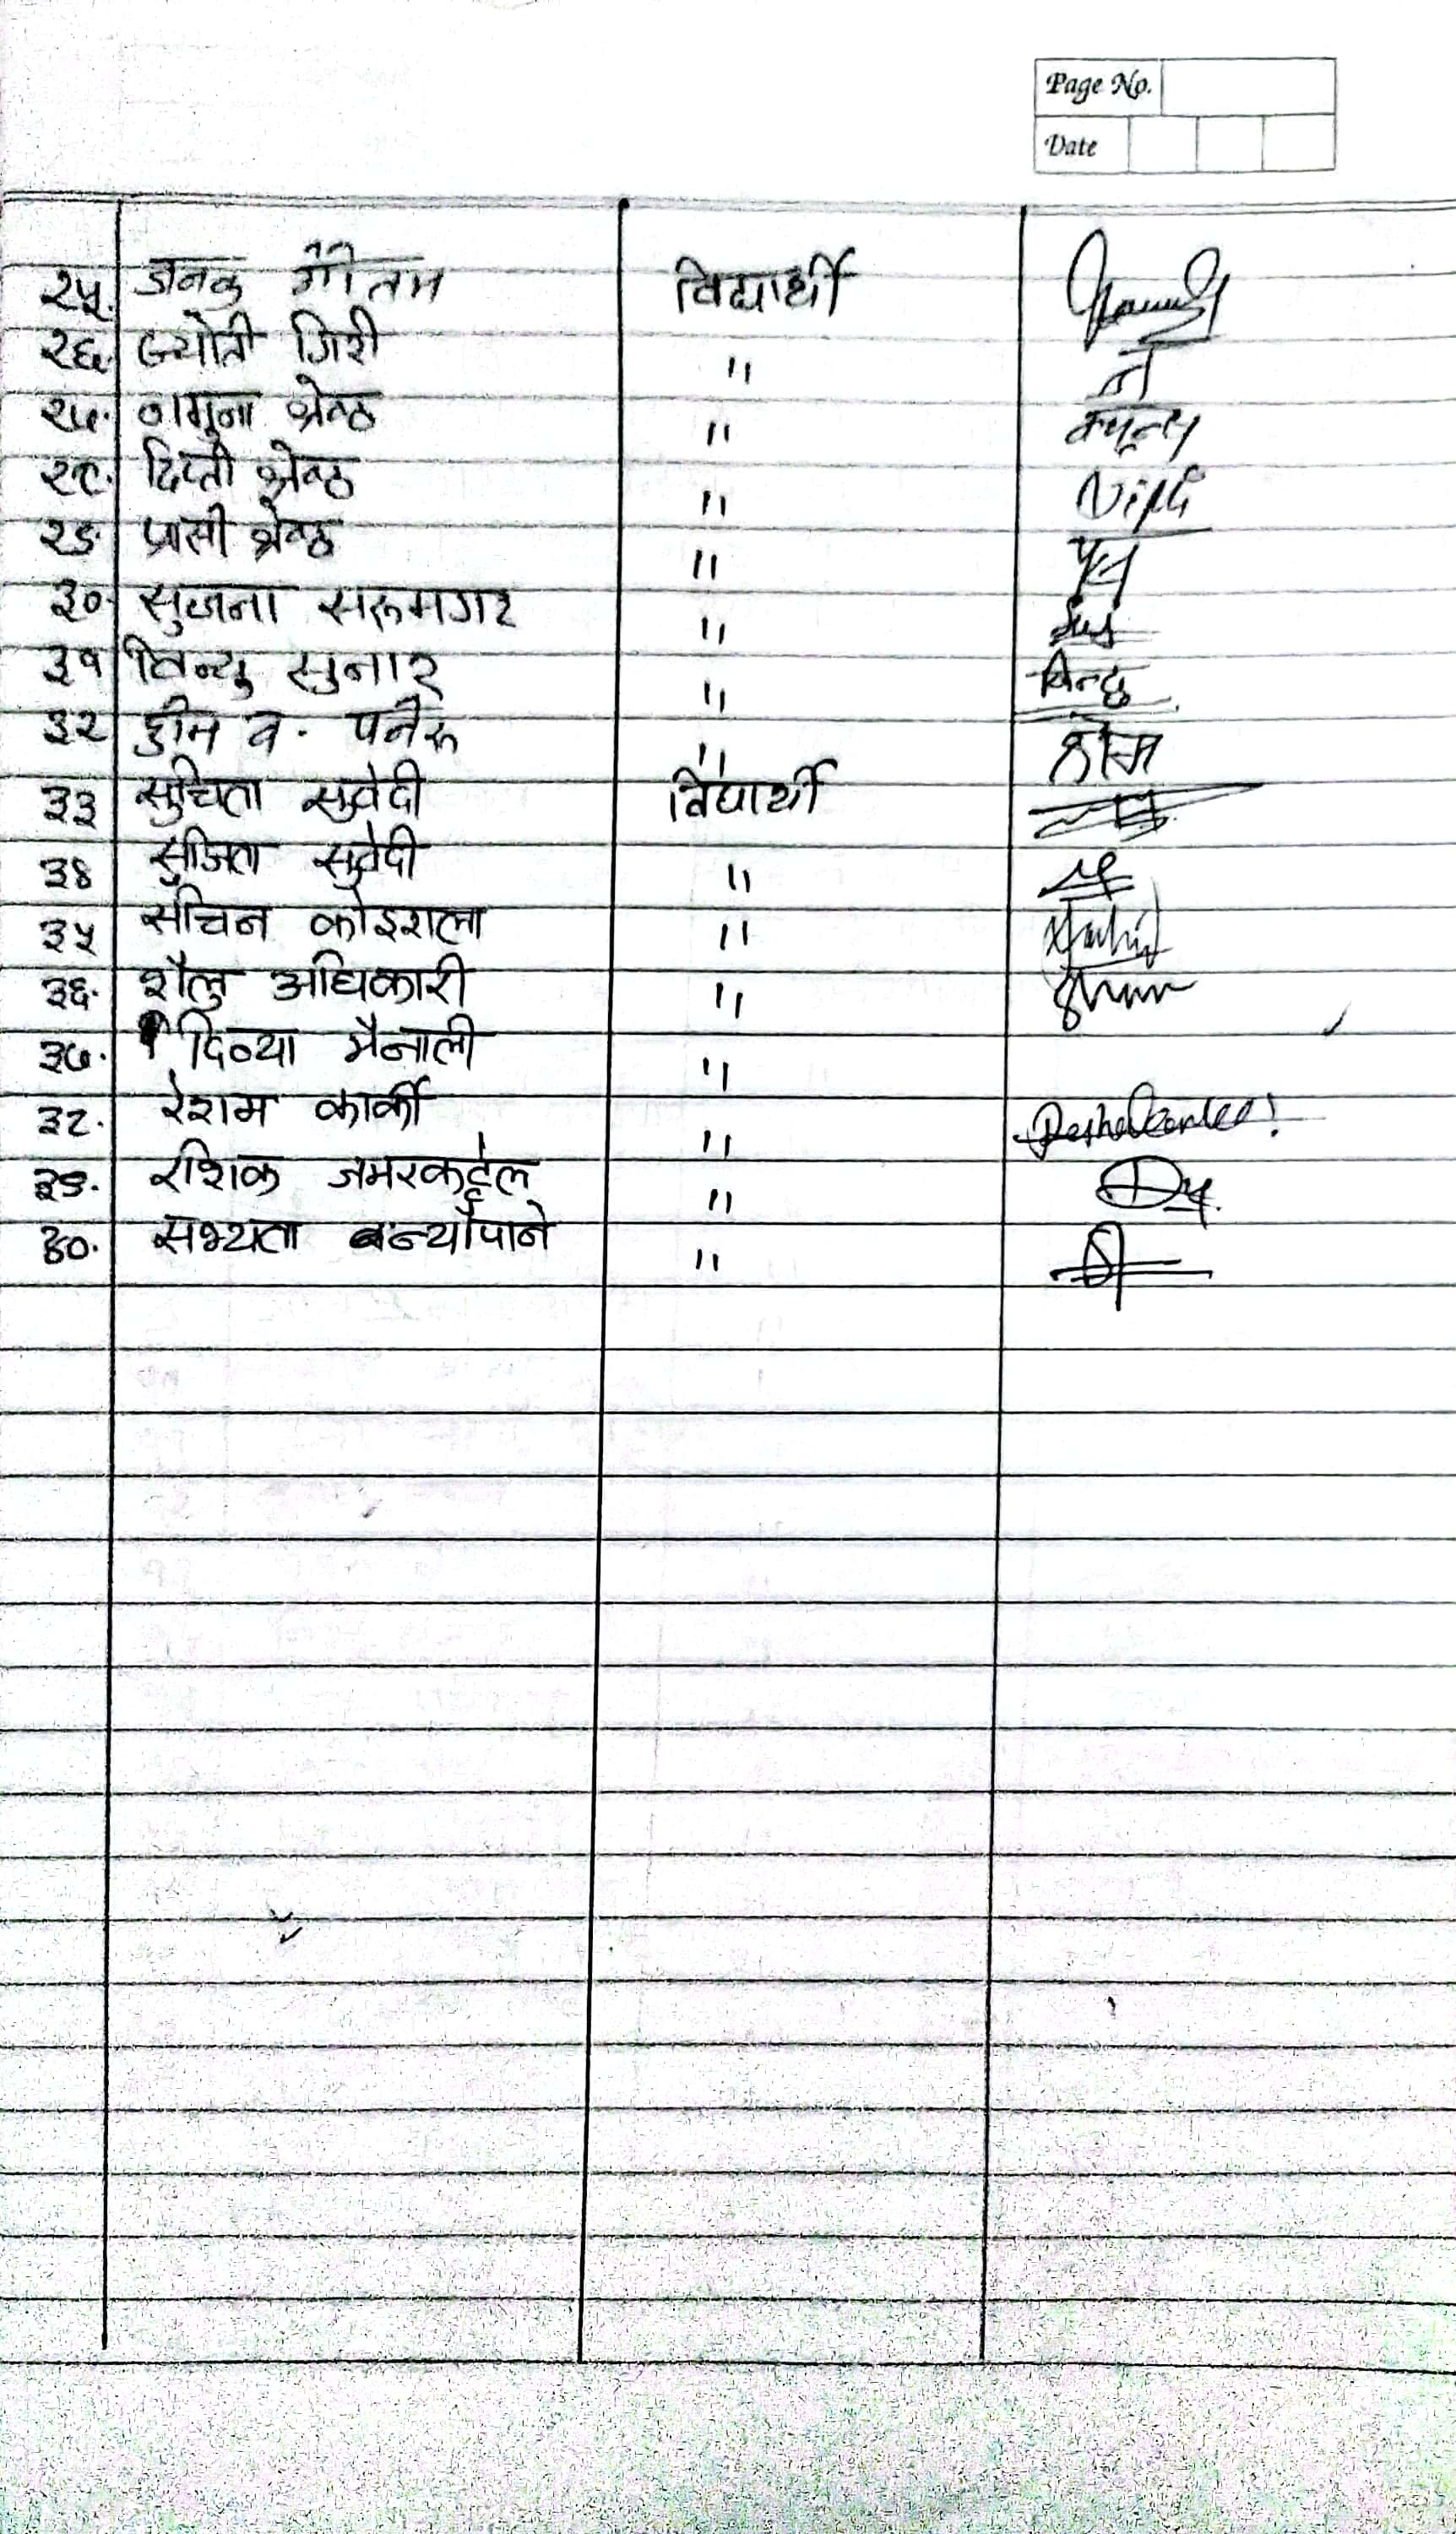 Page No.
Date
२५. जनक गौतम विद्यार्थी
२६. ज्योती गिरी "
२७. श्रेष्ठ "
२८. दिप्ती श्रेष्ठ "
२९. प्राप्ती श्रेष्ठ "
३०. सुजना सारुमगर "
३१ बिन्दु सुनार " बिन्दु
३२ डोम ब. पनेरु "
३३ सुचिता सुवेदी विद्यार्थी
३४ सुजिता सुवेदी "
३५ सचिन कोइराला "
३६. शैलु अधिकारी "
३७. दिव्या मैनाली "
३८. रेशम कार्की "
३९. रशिक जमरकट्टेल "
४०. सभ्यता बन्यौपाने "